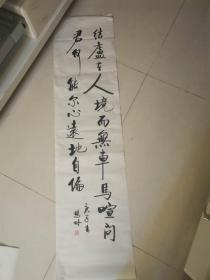 结庐在人境而無車馬喧问
君何能尔心遠地自偏
庚子書